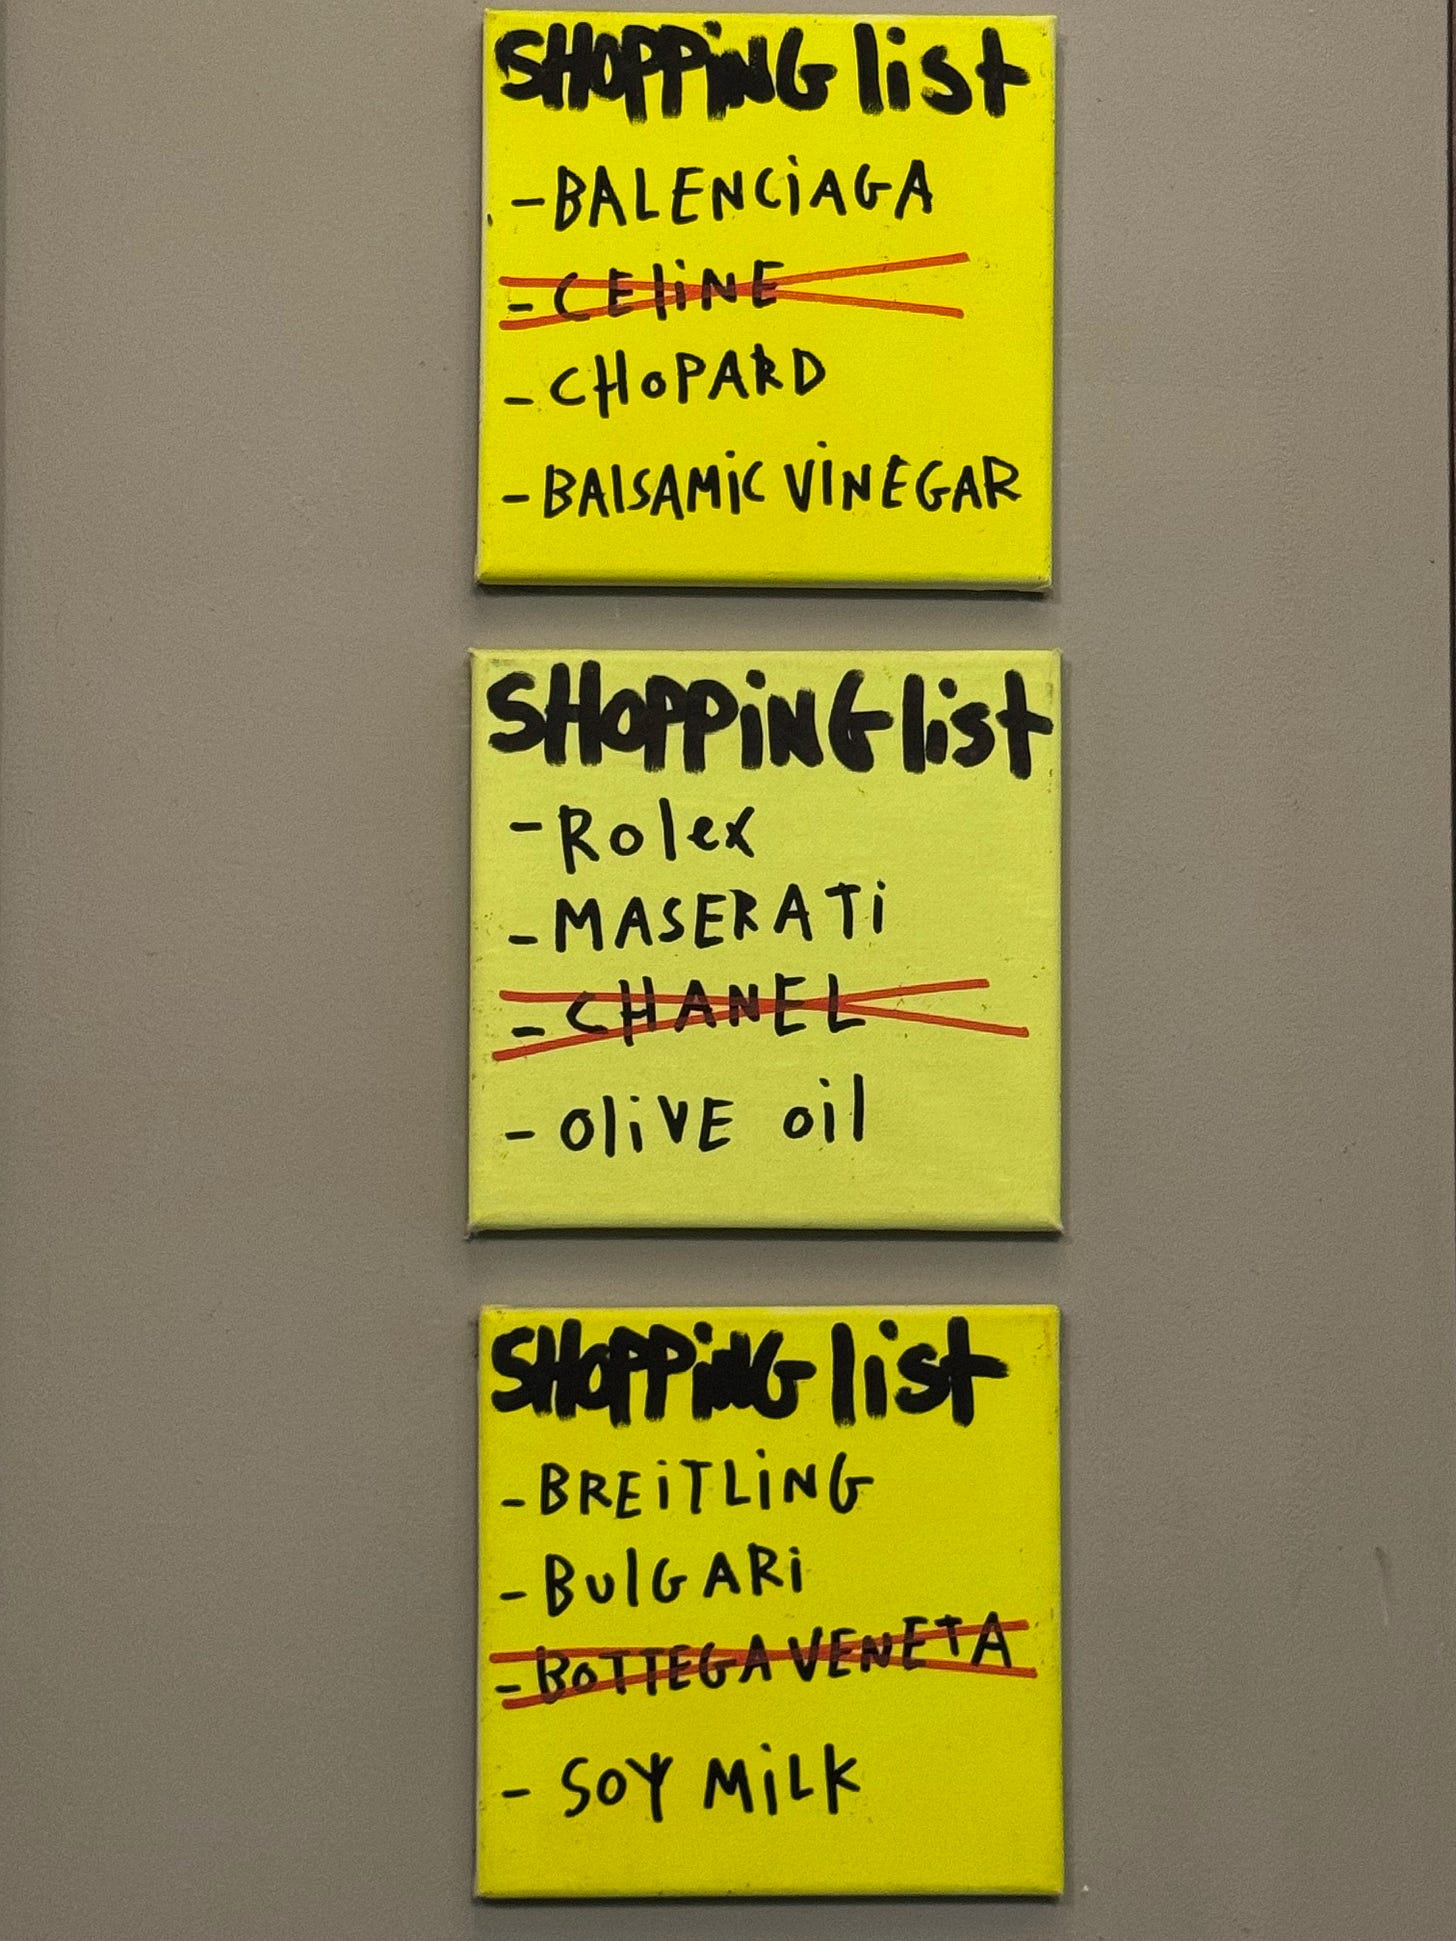 SHOPPiNG list
- BALENCiAGA
- CEliNE
- CHoPARD
- BAlSAMiC ViNEGAR
SHoPPiNG list
- Rolex
- MASERATi
- CHANEL
- oliVE oil
SHoPPiNG list
- BREiTLiNG
- BulGARi
- BoTTEGA VENETA
- SOY MiLK